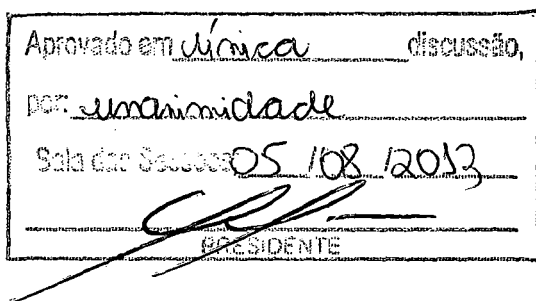 Aprovado em única discussão,
por: unanimidade
Sala das Sessões 05 / 08 / 2013
PRESIDENTE